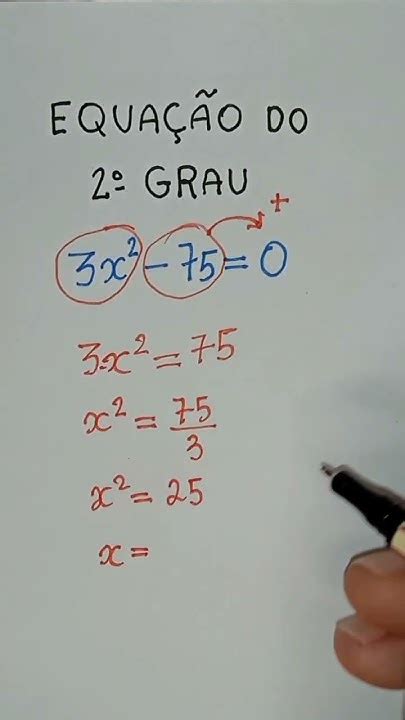 EQUAÇÃO DO
2º GRAU
+
3x² - 75 = 0
3·x² = 75
x² = 75/3
x² = 25
x =